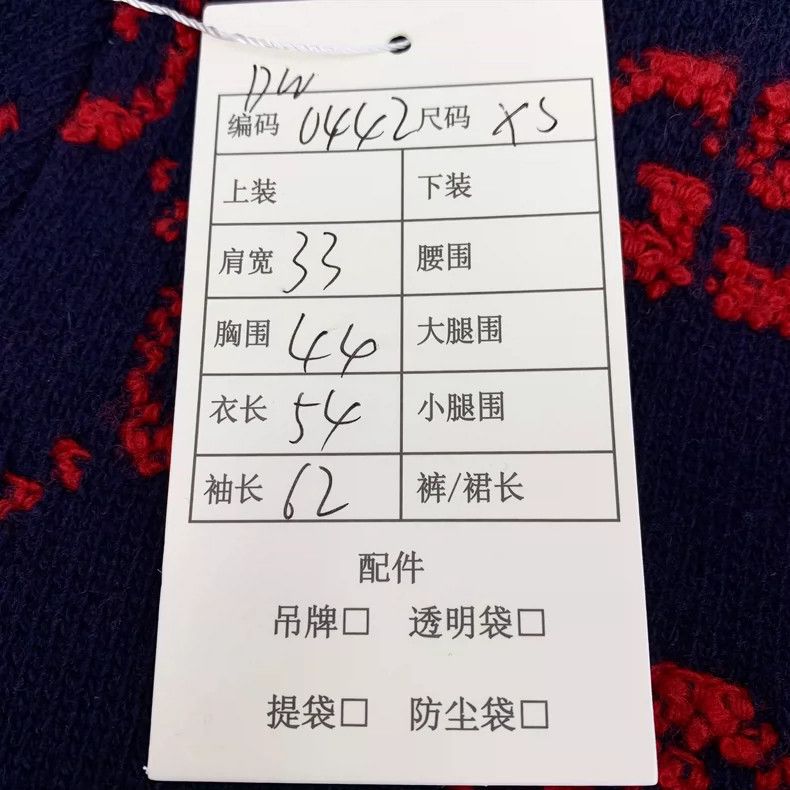 DW
编码 0442 尺码 XS
上装 下装
肩宽 33 腰围
胸围 44 大腿围
衣长 54 小腿围
袖长 62 裤/裙长
配件
吊牌□ 透明袋□
提袋□ 防尘袋□